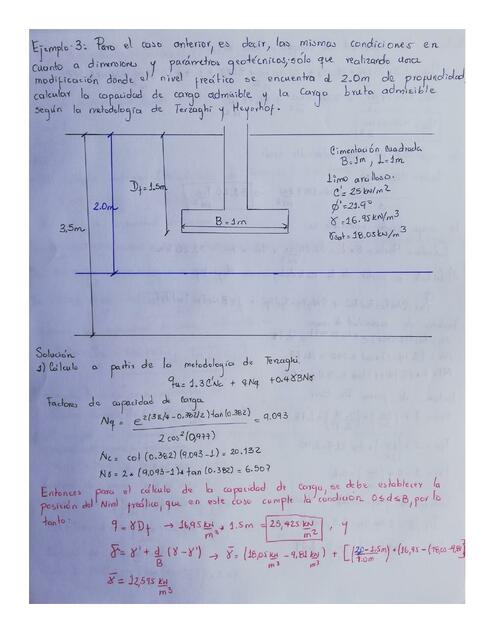 Ejemplo 3: Para el caso anterior, es decir, las mismas condiciones en
cuanto a dimensiones y parámetros geotécnicos, solo que realizando una
modificación donde el nivel freático se encuentra a 2.0m de profundidad
calcular la capacidad de carga admisible y la carga bruta admisible
según la metodología de Terzaghi y Meyerhof.
Cimentación cuadrada
B=1m, L=1m
Limo arcilloso.
C'=25kN/m2
Ø'=21.9°
γ=16.95kN/m3
γsat=18.05kN/m3
Df=1.5m
2.0m
3.5m
B=1m
Solución
1) Cálculo a partir de la metodología de Terzaghi
qu=1.3C'Nc + qNq + 0.4γBNγ
Factores de capacidad de carga
Nq = e^2(3π/4-0.382/2)tan(0.382) / 2cos²(0,977) = 9.093
Nc = cot(0.382)(9,093-1) = 20.132
Nγ = 2*(9,093+1)*tan(0.382) = 6.507
Entonces para el cálculo de la capacidad de carga, se debe establecer la
posición del Nivel freático, que en este caso cumple la condición 0≤d≤B, por lo
tanto:
q=γDf → 16,95 kN/m3 * 1.5m = 25,425 kN/m2, y
γ̄=γ'+d/B(γ-γ') → γ̄=(18,05 kN/m3 - 9,81 kN/m3) + [(2.0-1.5m)/1.0m * (16,95-(18,05-9,81)]
γ̄=12,595 kN/m3